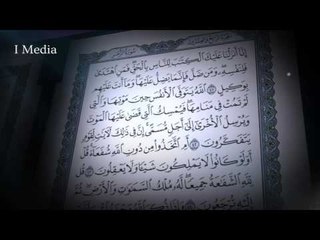 I Media
إِنَّا أَنزَلْنَا عَلَيْكَ ٱلْكِتَٰبَ لِلنَّاسِ بِٱلْحَقِّ فَمَنِ ٱهْتَدَىٰ
فَلِنَفْسِهِۦ وَمَن ضَلَّ فَإِنَّمَا يَضِلُّ عَلَيْهَا وَمَا أَنتَ عَلَيْهِم
بِوَكِيلٍ ٤١ ٱللَّهُ يَتَوَفَّى ٱلْأَنفُسَ حِينَ مَوْتِهَا وَٱلَّتِى
لَمْ تَمُتْ فِى مَنَامِهَا فَيُمْسِكُ ٱلَّتِى قَضَىٰ عَلَيْهَا ٱلْمَوْتَ
وَيُرْسِلُ ٱلْأُخْرَىٰ إِلَىٰ أَجَلٍ مُّسَمًّى إِنَّ فِى ذَٰلِكَ لَءَايَٰتٍ لِّقَوْمٍ
يَتَفَكَّرُونَ ٤٢ أَمِ ٱتَّخَذُوا۟ مِن دُونِ ٱللَّهِ شُفَعَآءَ قُلْ
أَوَلَوْ كَانُوا۟ لَا يَمْلِكُونَ شَيْـًٔا وَلَا يَعْقِلُونَ ٤٣ قُل
لِّلَّهِ ٱلشَّفَٰعَةُ جَمِيعًا لَّهُۥ مُلْكُ ٱلسَّمَٰوَٰتِ وَٱلْأَرْضِ ثُمَّ